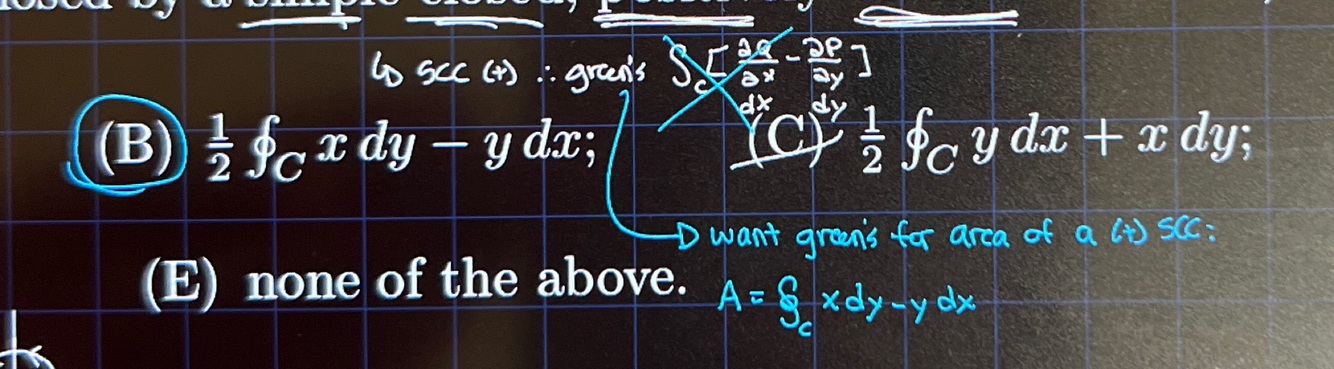 by a simple closed,
↳ scc (+) ∴ green's ∮_C [∂Q/∂x - ∂P/∂y]
dx dy
(B) 1/2 ∮_C x dy − y dx; (C) 1/2 ∮_C y dx + x dy;
→ want green's for area of a (+) SCC:
(E) none of the above.
A = ∮_C x dy - y dx